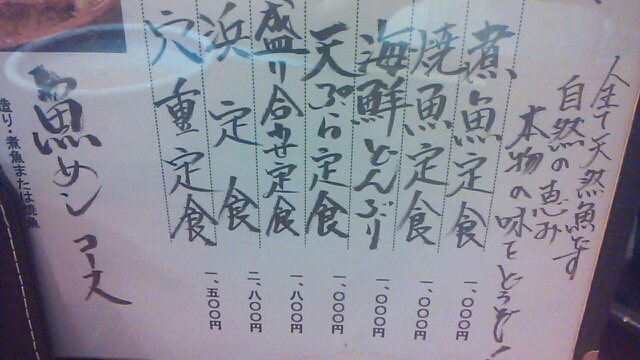 全て天然魚です
自然の恵み
本物の味をどうぞ！
煮魚定食 一、〇〇〇円
焼魚定食 一、〇〇〇円
海鮮どんぶり 一、〇〇〇円
天ぷら定食 一、〇〇〇円
盛り合せ定食 一、八〇〇円
浜定食 二、八〇〇円
穴重定食 一、五〇〇円
魚メンコース
造り・煮魚または焼魚